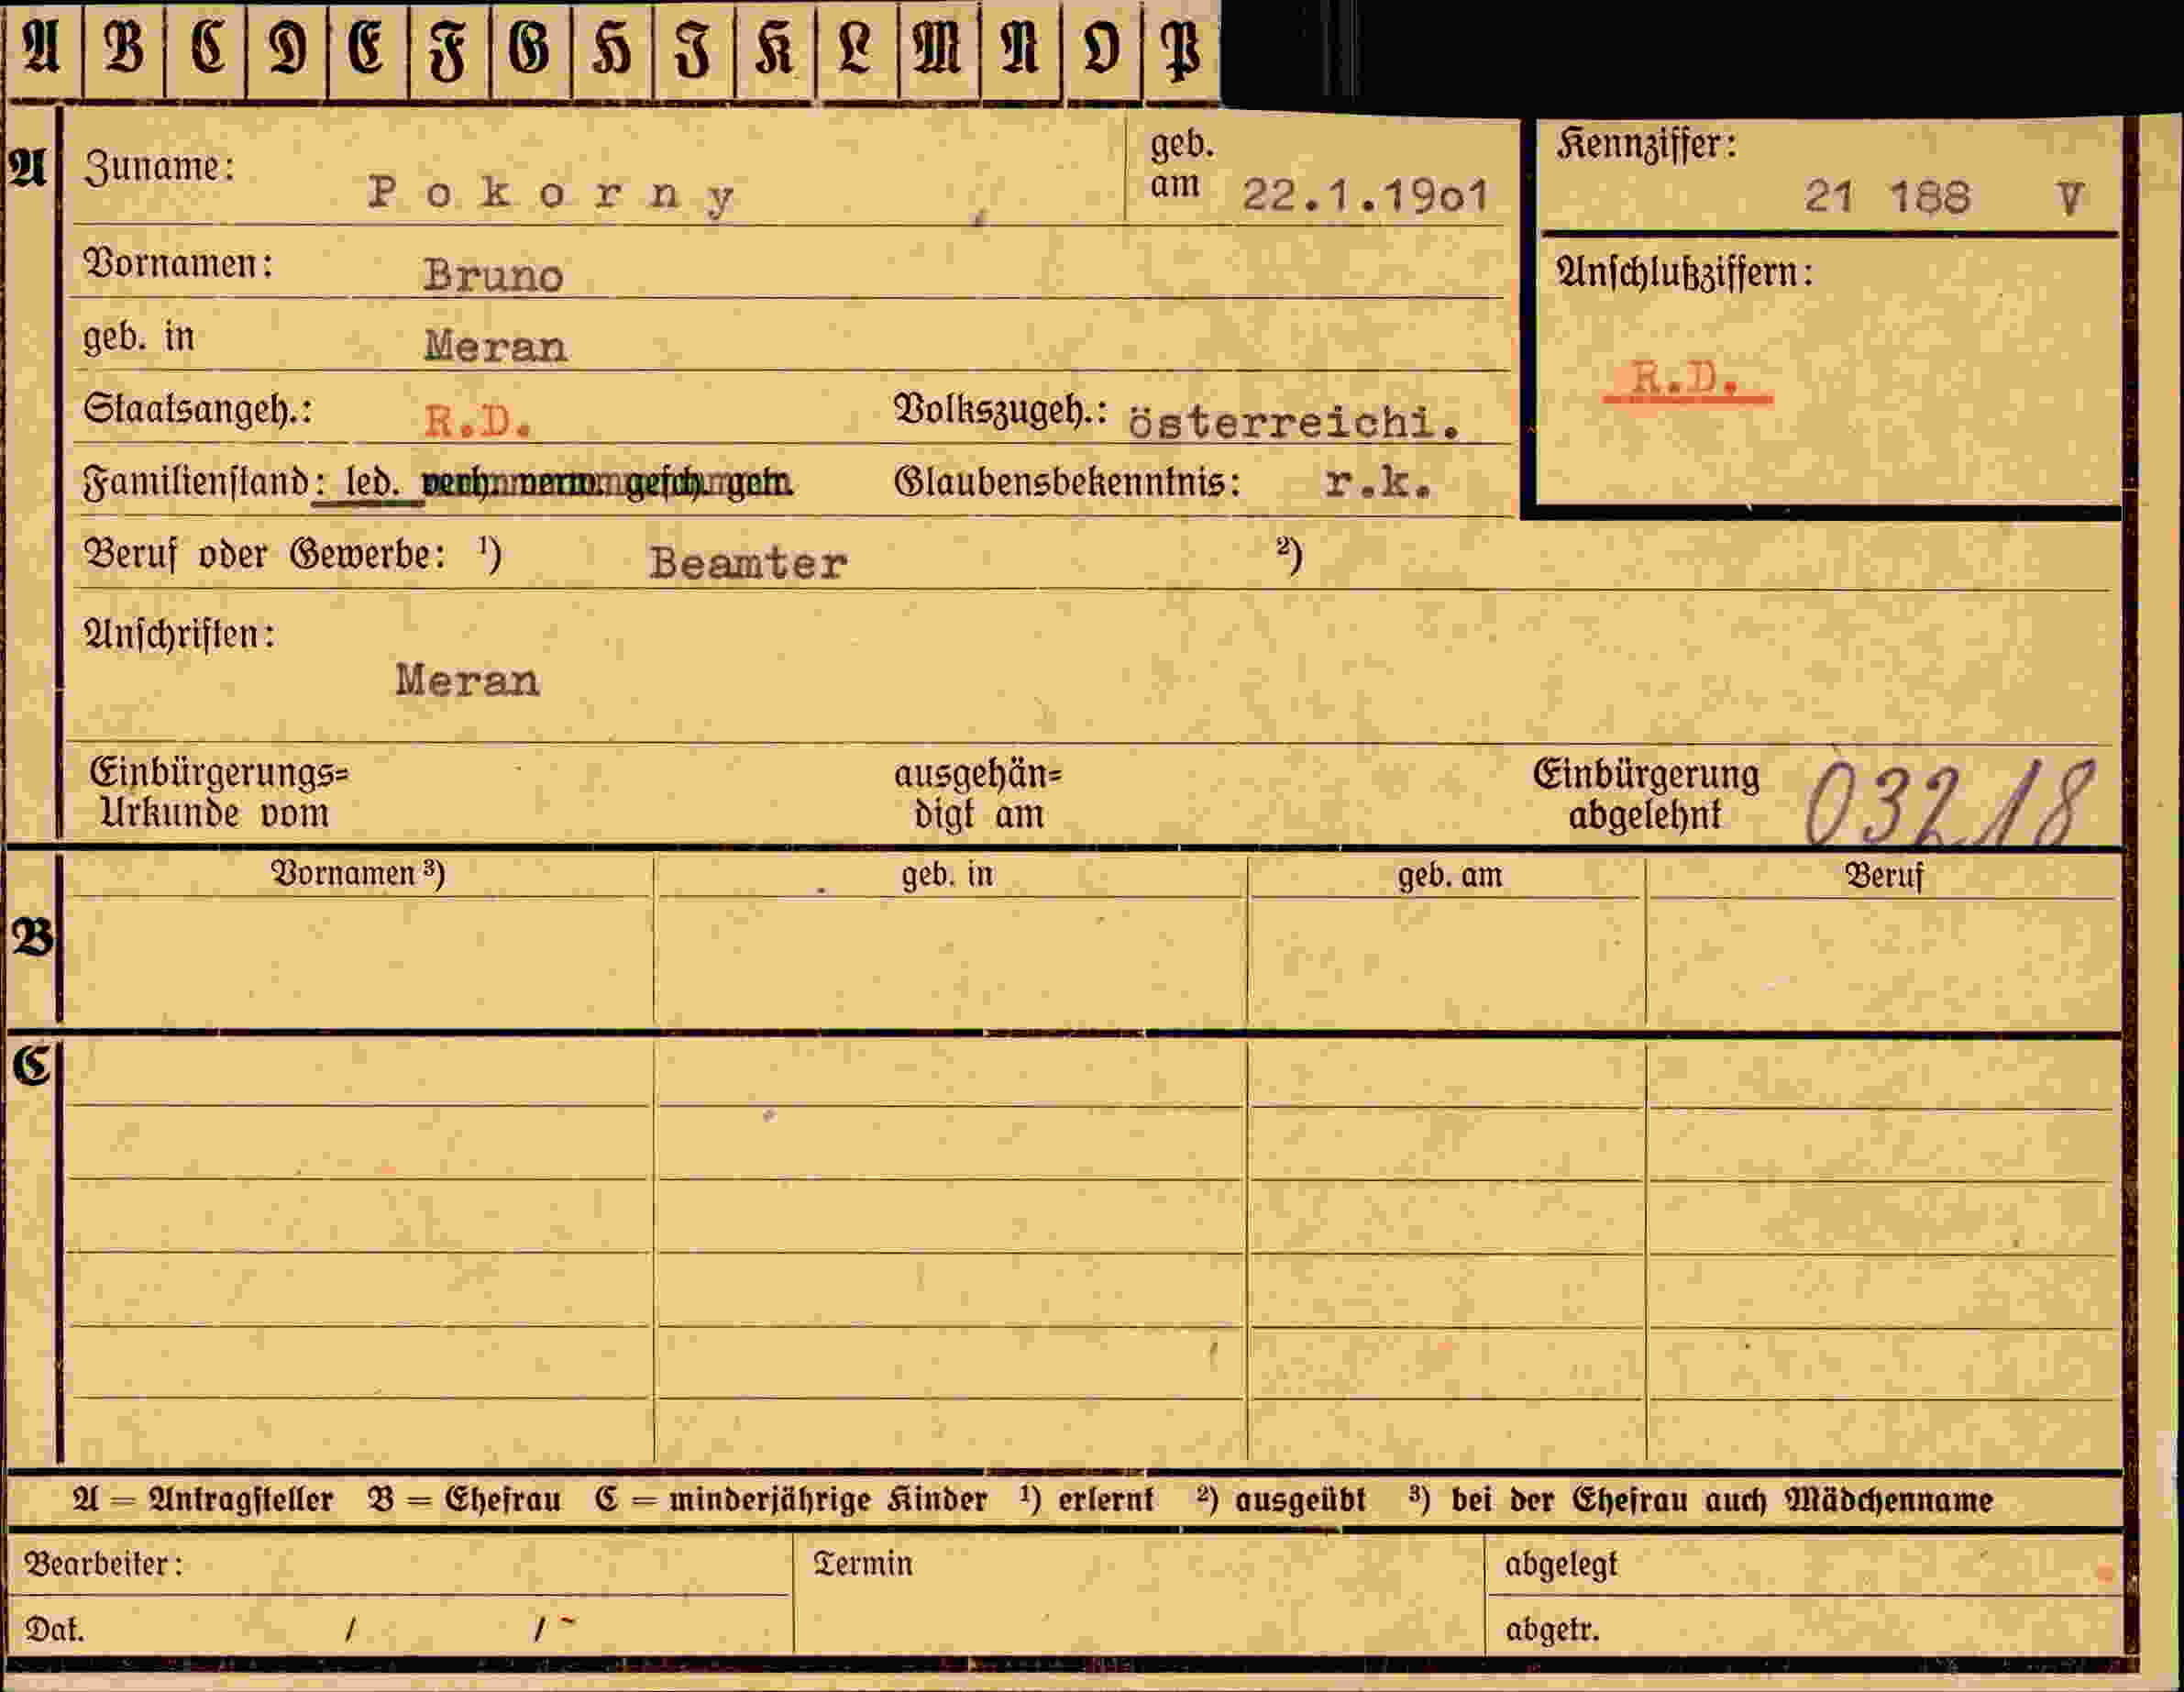 A B C D E F G H J K L M N O P
A
Zuname: Pokorny geb. am 22.1.19o1
Kennziffer: 21 188 V
Vornamen: Bruno
Anschlußziffern:
geb. in Meran
R.D.
Staatsangeh.: R.D. Volkszugeh.: österreichi.
Familienstand: led. Glaubensbekenntnis: r.k.
Beruf oder Gewerbe: ¹) Beamter ²)
Anschriften:
Meran
Einbürgerungs=
Urkunde vom
ausgehän=
digt am
Einbürgerung
abgelehnt
03218
B
Vornamen ³) geb. in geb. am Beruf
C
A = Antragsteller B = Ehefrau C = minderjährige Kinder ¹) erlernt ²) ausgeübt ³) bei der Ehefrau auch Mädchenname
Bearbeiter: Termin abgelegt
Dat. / / abgetr.